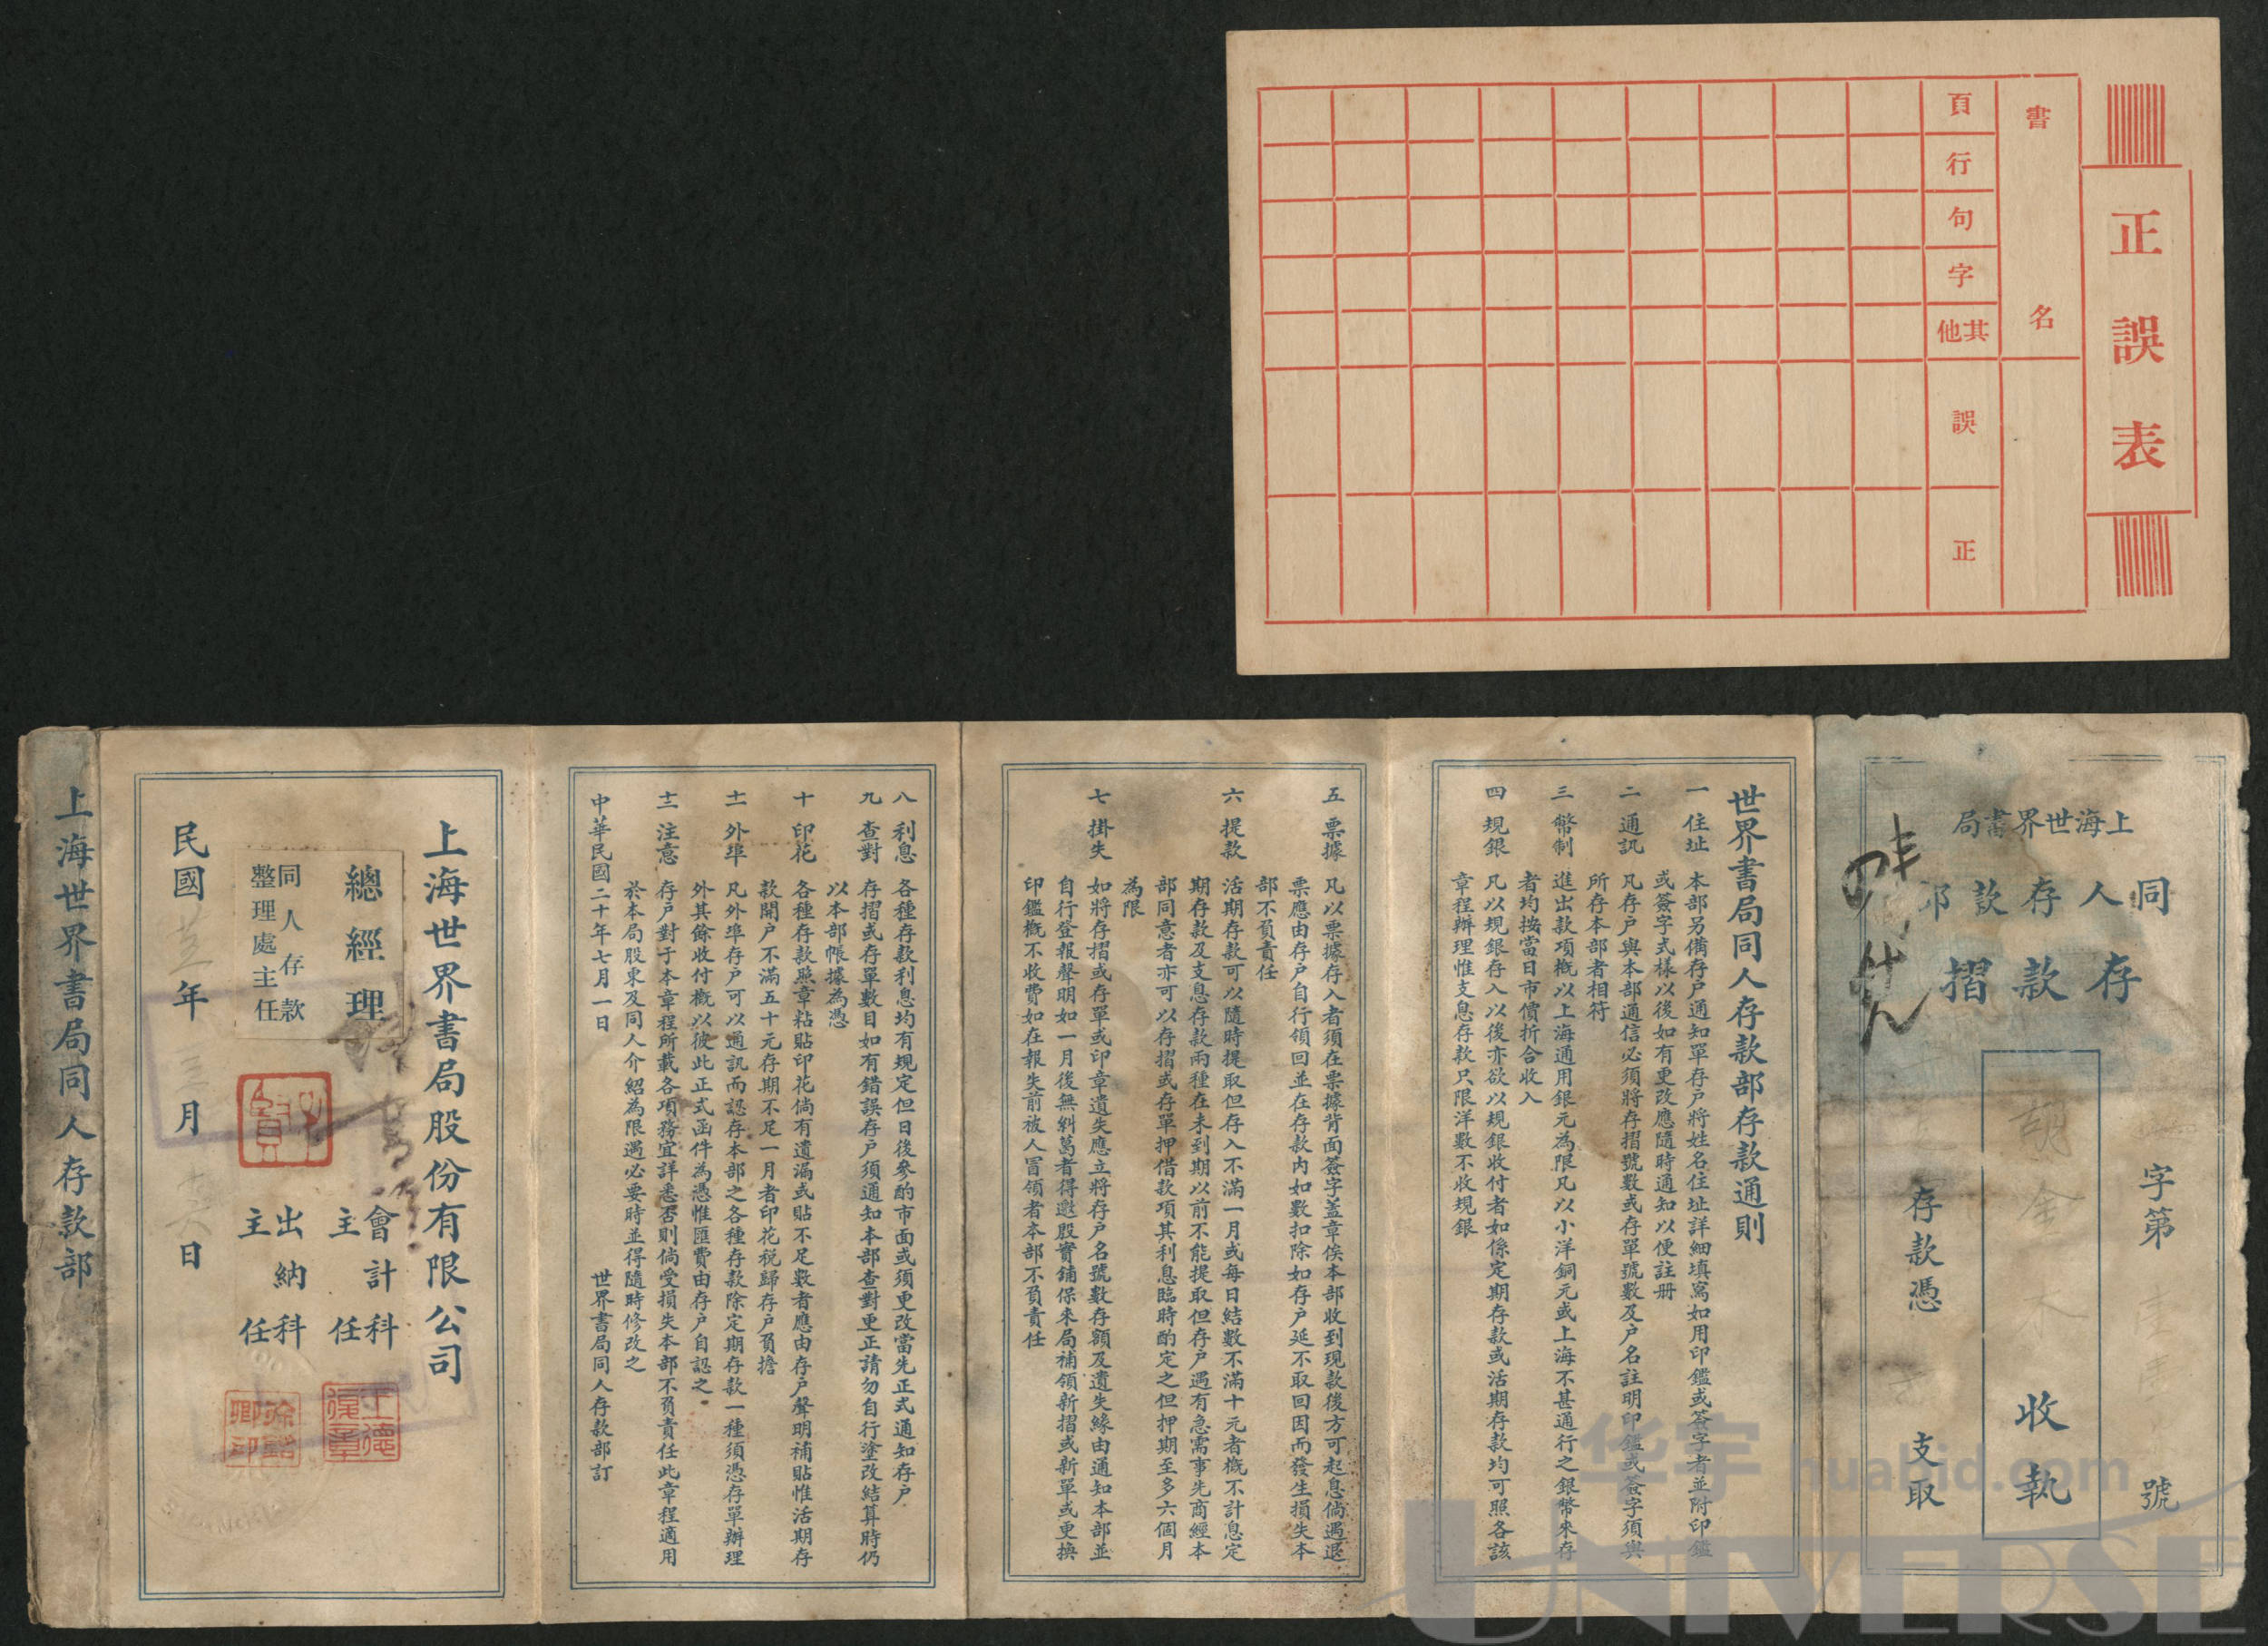 正誤表
書名
頁
行
句
字
其他
誤
正
上海世界書局
同人存款部
存款摺
字第
號
收執
存款憑
支取
世界書局同人存款部存款通則
一 住址 本部另備存户通知單存户將姓名住址詳細填寫如用印鑑或簽字者並附印鑑
或簽字式樣以後如有更改應隨時通知以便註册
二 通訊 凡存户與本部通信必須將存摺號數或存單號數及户名註明印鑑或簽字須與
所存本部者相符
三 幣制 進出款項概以上海通用銀元為限凡以小洋銅元或上海不甚通行之銀幣來存
者均按當日市價折合收入
四 規銀 凡以規銀存入以後亦欲以規銀收付者如係定期存款或活期存款均可照各該
章程辦理惟支息存款只限洋數不收規銀
五 票據 凡以票據存入者須在票據背面簽字蓋章俟本部收到現款後方可起息倘遇退
票應由存户自行領回並在存款内如數扣除如存户延不取回因而發生損失本
部不負責任
六 提款 活期存款可以隨時提取但存入不滿一月或每日結數不滿十元者概不計息定
期存款及支息存款兩種在未到期以前不能提取但存户遇有急需事先商經本
部同意者亦可以存摺或存單押借款項其利息臨時酌定之但押期至多六個月
為限
七 掛失 如將存摺或存單或印章遺失應立將存户名號數存額及遺失緣由通知本部並
自行登報聲明如一月後無糾葛者得邀殷實鋪保來局補領新摺或新單或更換
印鑑概不收費如在報失前被人冒領者本部不負責任
八 利息 各種存款利息均有規定但日後參酌市面或須更改當先正式通知存户
九 查對 存摺或存單數目如有錯誤存户須通知本部查對更正請勿自行塗改結算時仍
以本部帳據為憑
十 印花 各種存款照章粘貼印花倘有遺漏或貼不足數者應由存户聲明補貼惟活期存
款開户不滿五十元存期不足一月者印花税歸存户負擔
十一 外埠 凡外埠存户可以通訊而認存本部之各種存款除定期存款一種須憑存單辦理
外其餘收付概以彼此正式函件為憑惟匯費由存户自認之
十二 注意 存户對于本章程所載各項務宜詳悉否則倘受損失本部不負責任此章程適用
於本局股東及同人介紹為限遇必要時並得隨時修改之
中華民國二十年七月一日 世界書局同人存款部訂
上海世界書局股份有限公司
總經理
同人存款
整理處主任
會計科
主任
出納科
主任
民國 年 月 日
上海世界書局同人存款部
华宇 huabid.com
UNIVERSE